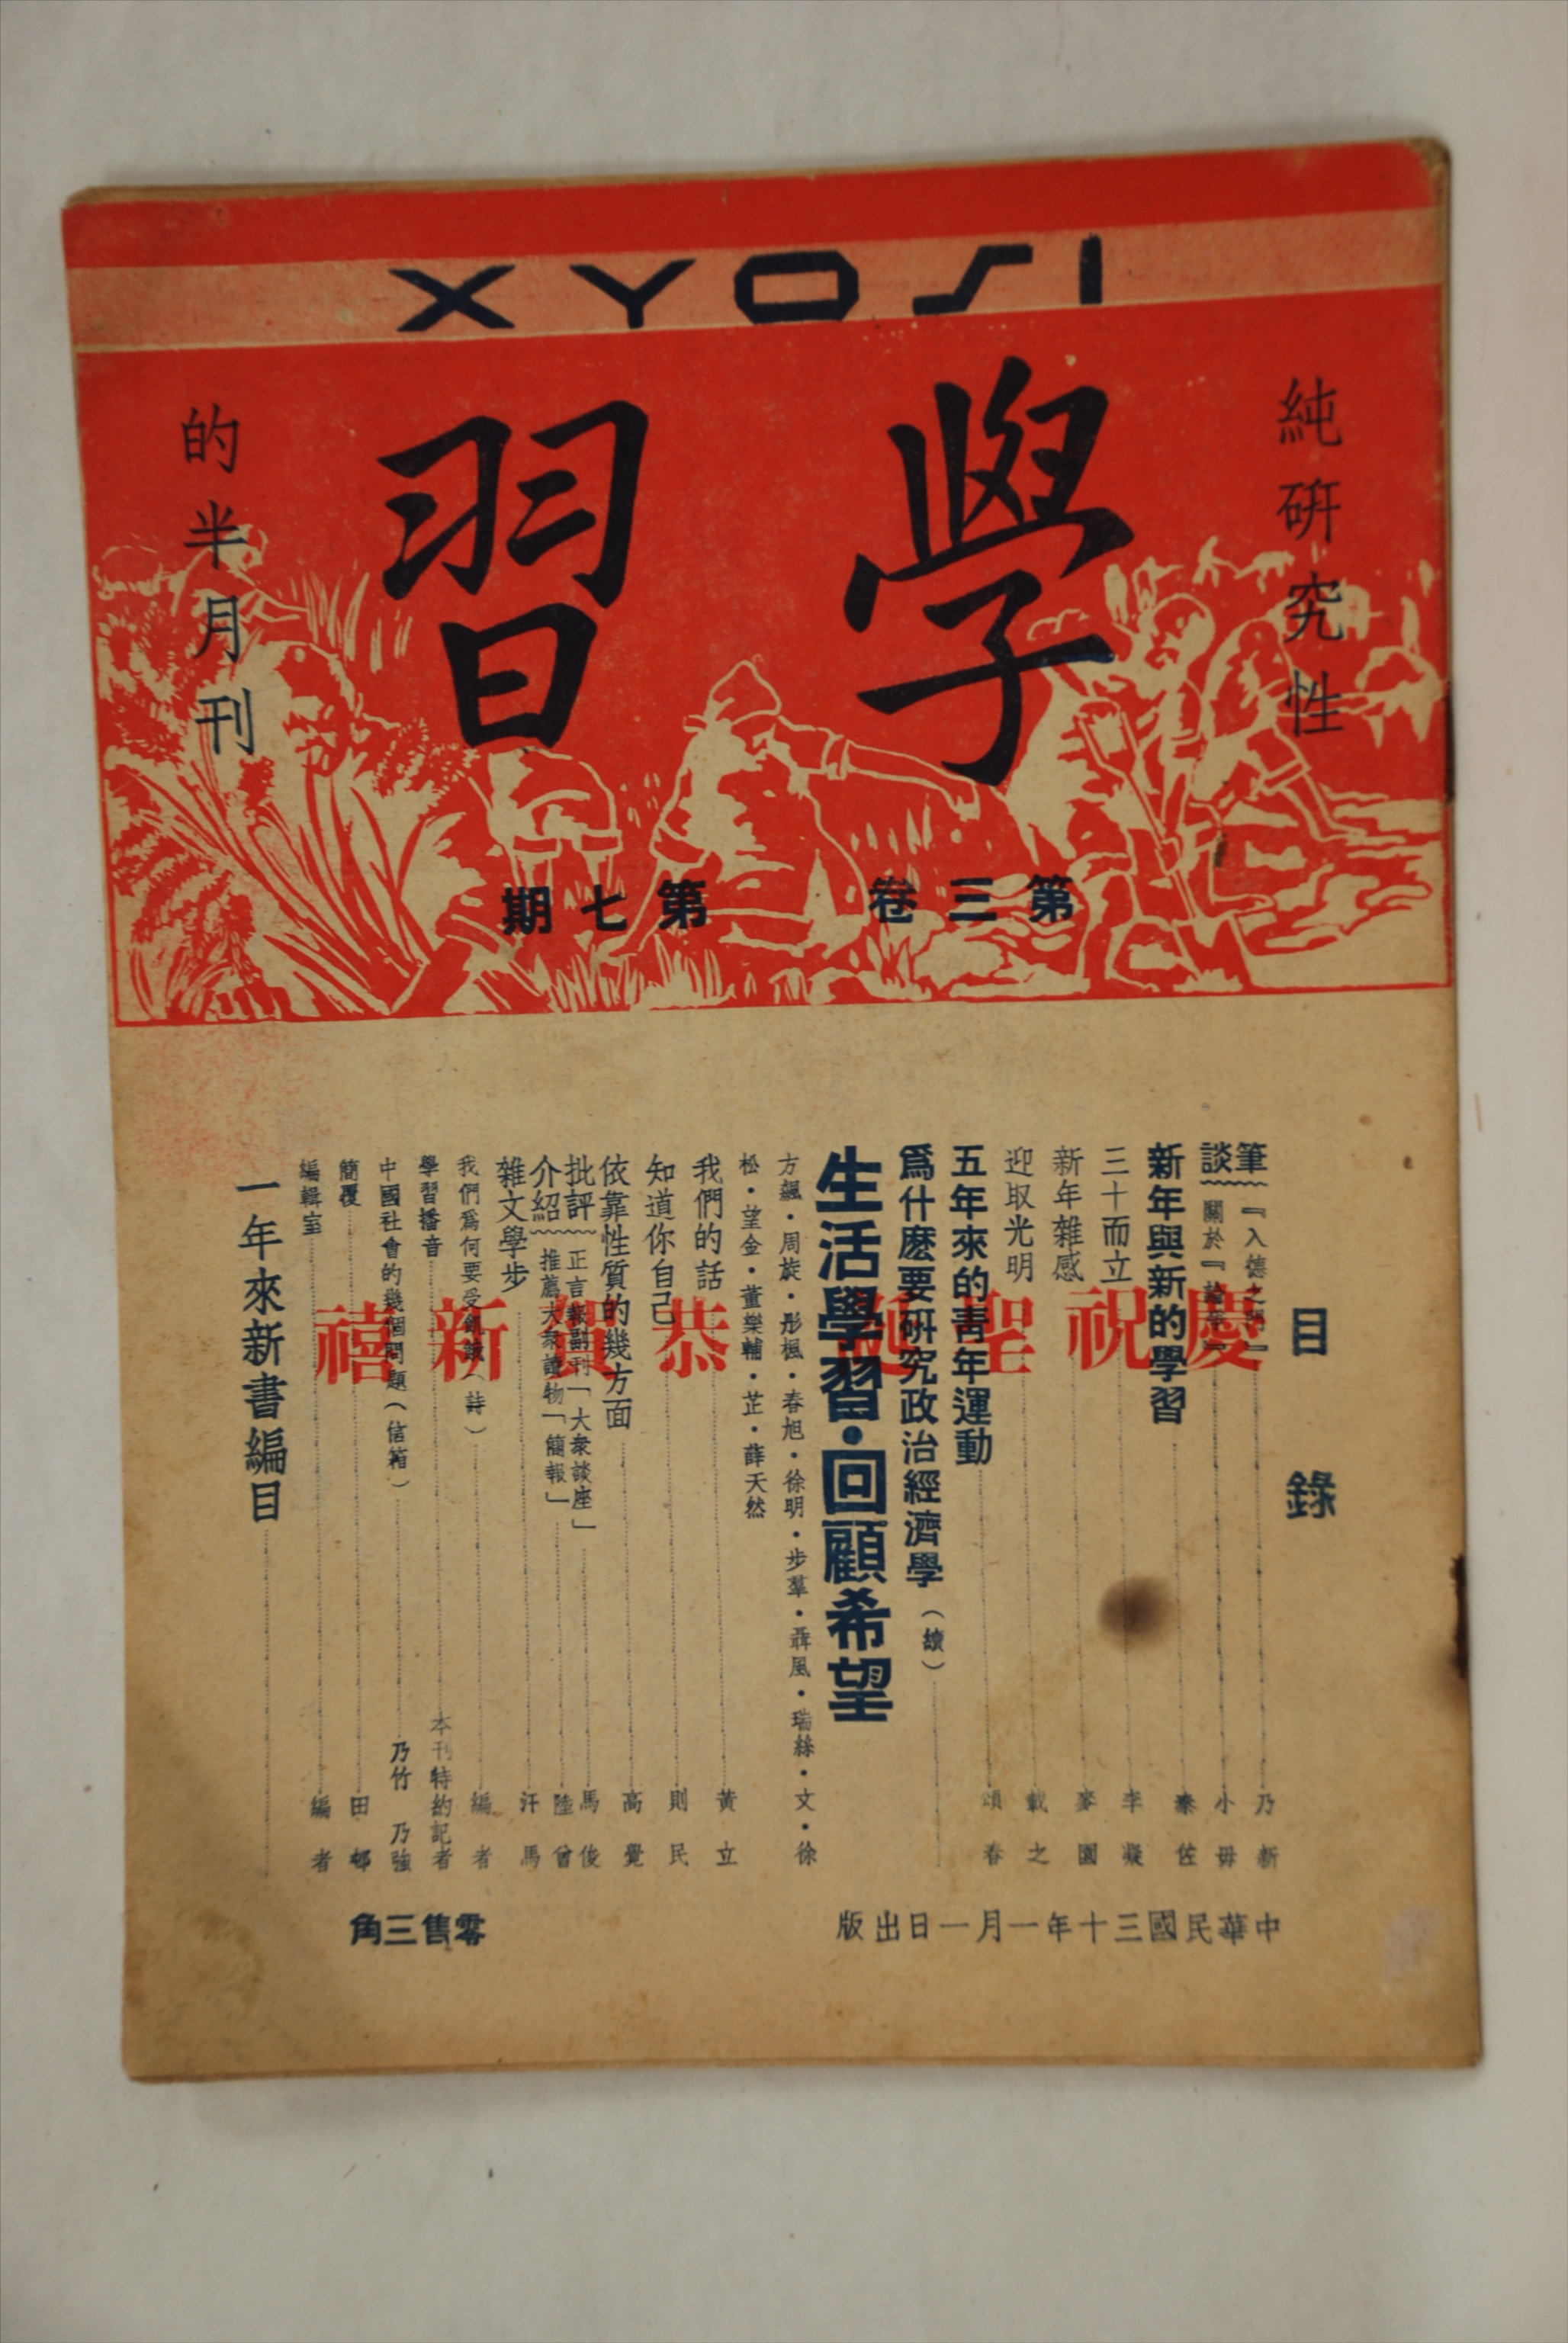 XYOSI
學習
純研究性
的半月刊
第三卷 第七期
目錄
筆談
『入德之門』 乃新
關於『論 小毋
新年與新的學習 秦佐
三十而立 李凝
新年雜感 麥園
迎取光明 載之
五年來的青年運動 頌春
爲什麽要研究政治經濟學(續)
生活學習·回顧希望
方飆·周旋·彤楓·春旭·徐明·步羣·聶風·瑞絲·文·徐
松·望金·董樂輔·芷·薛天然
我們的話 黃立
知道你自己 則民
依靠性質的幾方面 高覺
批評介紹
正言報副刊「大衆談座」 馬俊
推薦大衆讀物「簡報」 陸曾
雜文學步 汗馬
我們爲何要受飢餓(詩) 編者
學習播音 本刊特約記者
中國社會的幾個問題(信箱) 乃竹 乃強
簡覆 田
編輯室 編者
一年來新書編目
慶祝聖誕 恭賀新禧
中華民國三十年一月一日出版
零售三角